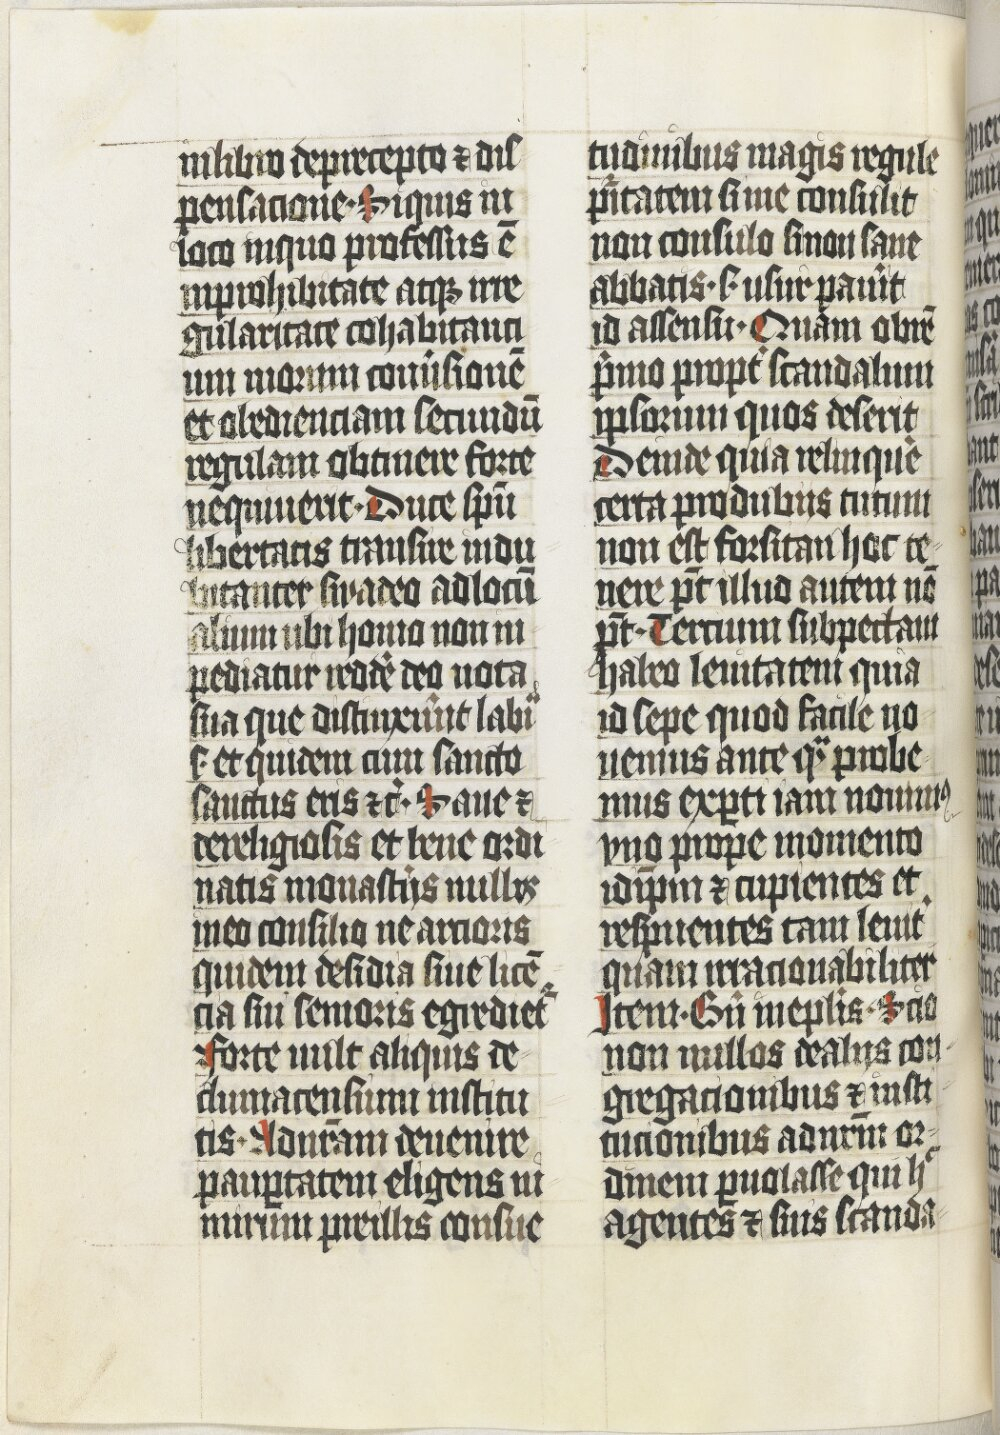 in libro de precepto ⁊ dis
pensacione· Siquis in
loco inquo professus ē
inprohibitate atqꝫ irre
gularitate cohabitanci
um morum conuͥsionē
et obedienciam secundū
regulam obtinere forte
nequiuerit· Duce spū
libertatis transire indu
bitanter suadeo ad locū
alium ubi homo non in
pediatur redde͛ deo uota
sua que distinxerūt labiͣ
s· et quidem cum sancto
sanctus eris ⁊c̄· Sane ⁊
dereligiosis et bene ordi
natis monastͥis nullꝰ
meo consilio ne arcioris
quidem desidia siue licē
cia sui senioris egrediet᷑
Forte uult aliquis de
cluniacensium institu
tis· Adnr̄am deuenire
paup̱tatem eligens ni
mirum pre illis consue
tudinibus magis regule
puͥtatem si me consulit
non consulo sinon sane
abbatis· s· usur pauͥt
id assensu· Quam obrē
p̄mo propt͛ scandalum
ipsorum quos deserit
Deinde quia relinque͛
certa produbiis tutum
non est forsitan hoc te
nere pt̄ illud autem nō
pt̄· Tercium suspectam
habeo leuitatem quia
id sepe quod facile uo
uemus ante qͣ probe
mus exp̱ti iam nolumꝰ
vno prope momento
idip̄m ⁊ cupientes et
respuentes tam leuit͛
quam irracionabiliter
Item· in eplīs· Scio
non nullos dealiis con
gregacionibus ⁊ insti
tucionibus adnrm̄ or
dinem ꝓuolasse qui hͦ
agentes ⁊ suis scanda